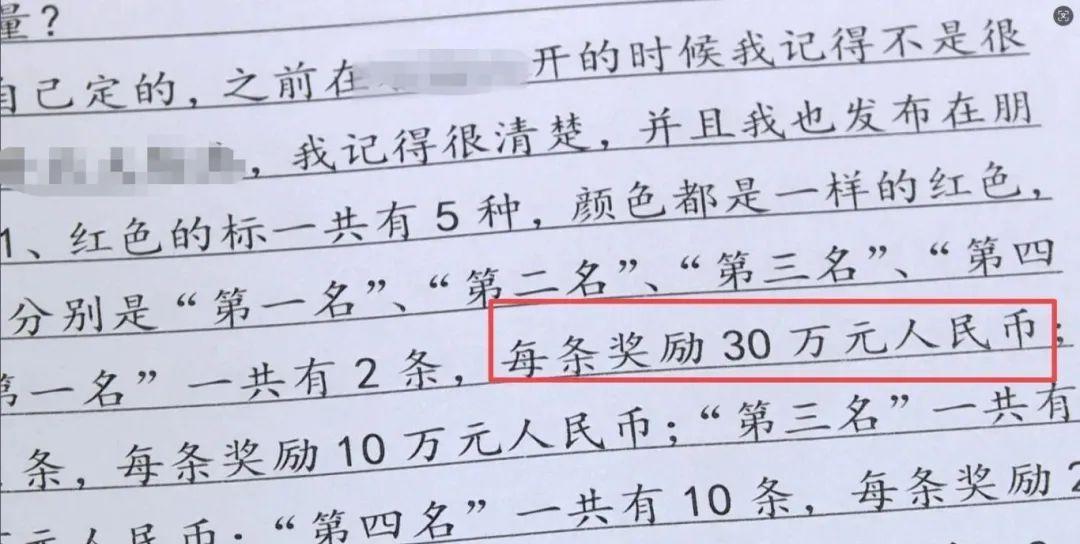 量？
自己定的，之前在 开的时候我记得不是很
，我记得很清楚，并且我也发布在朋
1、红色的标一共有 5 种，颜色都是一样的红色，
分别是“第一名”、“第二名”、“第三名”、“第四
第一名”一共有 2 条，每条奖励 30 万元人民币；
条，每条奖励 10 万元人民币；“第三名”一共有
元人民币；“第四名”一共有 10 条，每条奖励 2